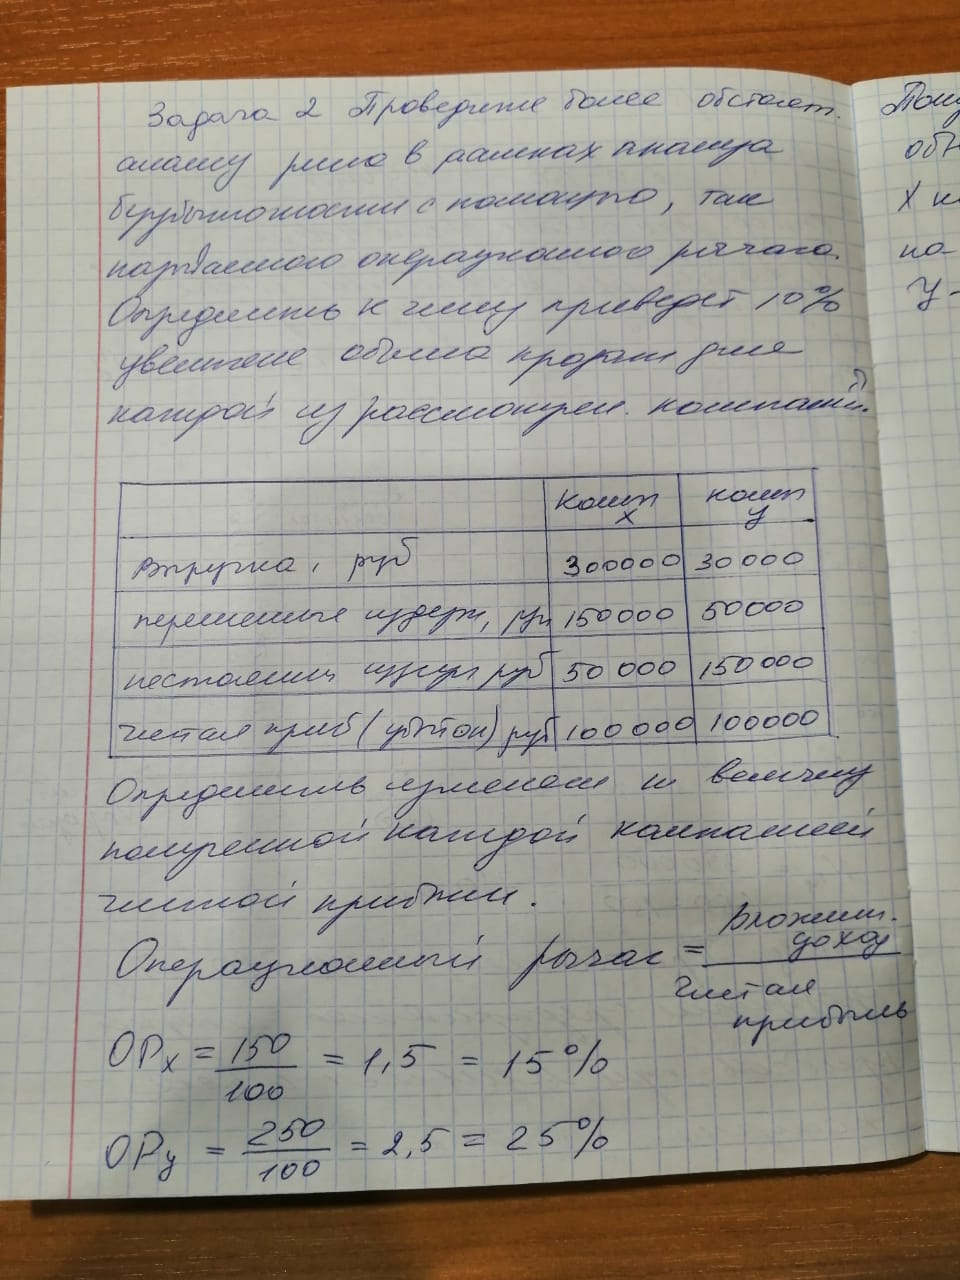 Задача 2 Проведение более обстоят.
анализу риска в рамках анализа
безубыточности с помощью, так
называемого операционного рычага.
Определить к чему приведет 10%
увеличение объема продаж для
каждой из рассмотрен. компаний.
Комп X комп У
выручка, руб 300000 30000
переменные издерж, руб 150000 50000
постоянные издерж руб 50 000 150 000
чистая приб (убыток) руб 100 000 100000
Определить изменение величину
полученной каждой компанией
чистой прибыли.
Операционный рычаг = вложен. доход / чистая прибыль
ОРх = 150/100 = 1,5 = 15%
ОРу = 250/100 = 2,5 = 25%
Х
на-
У-